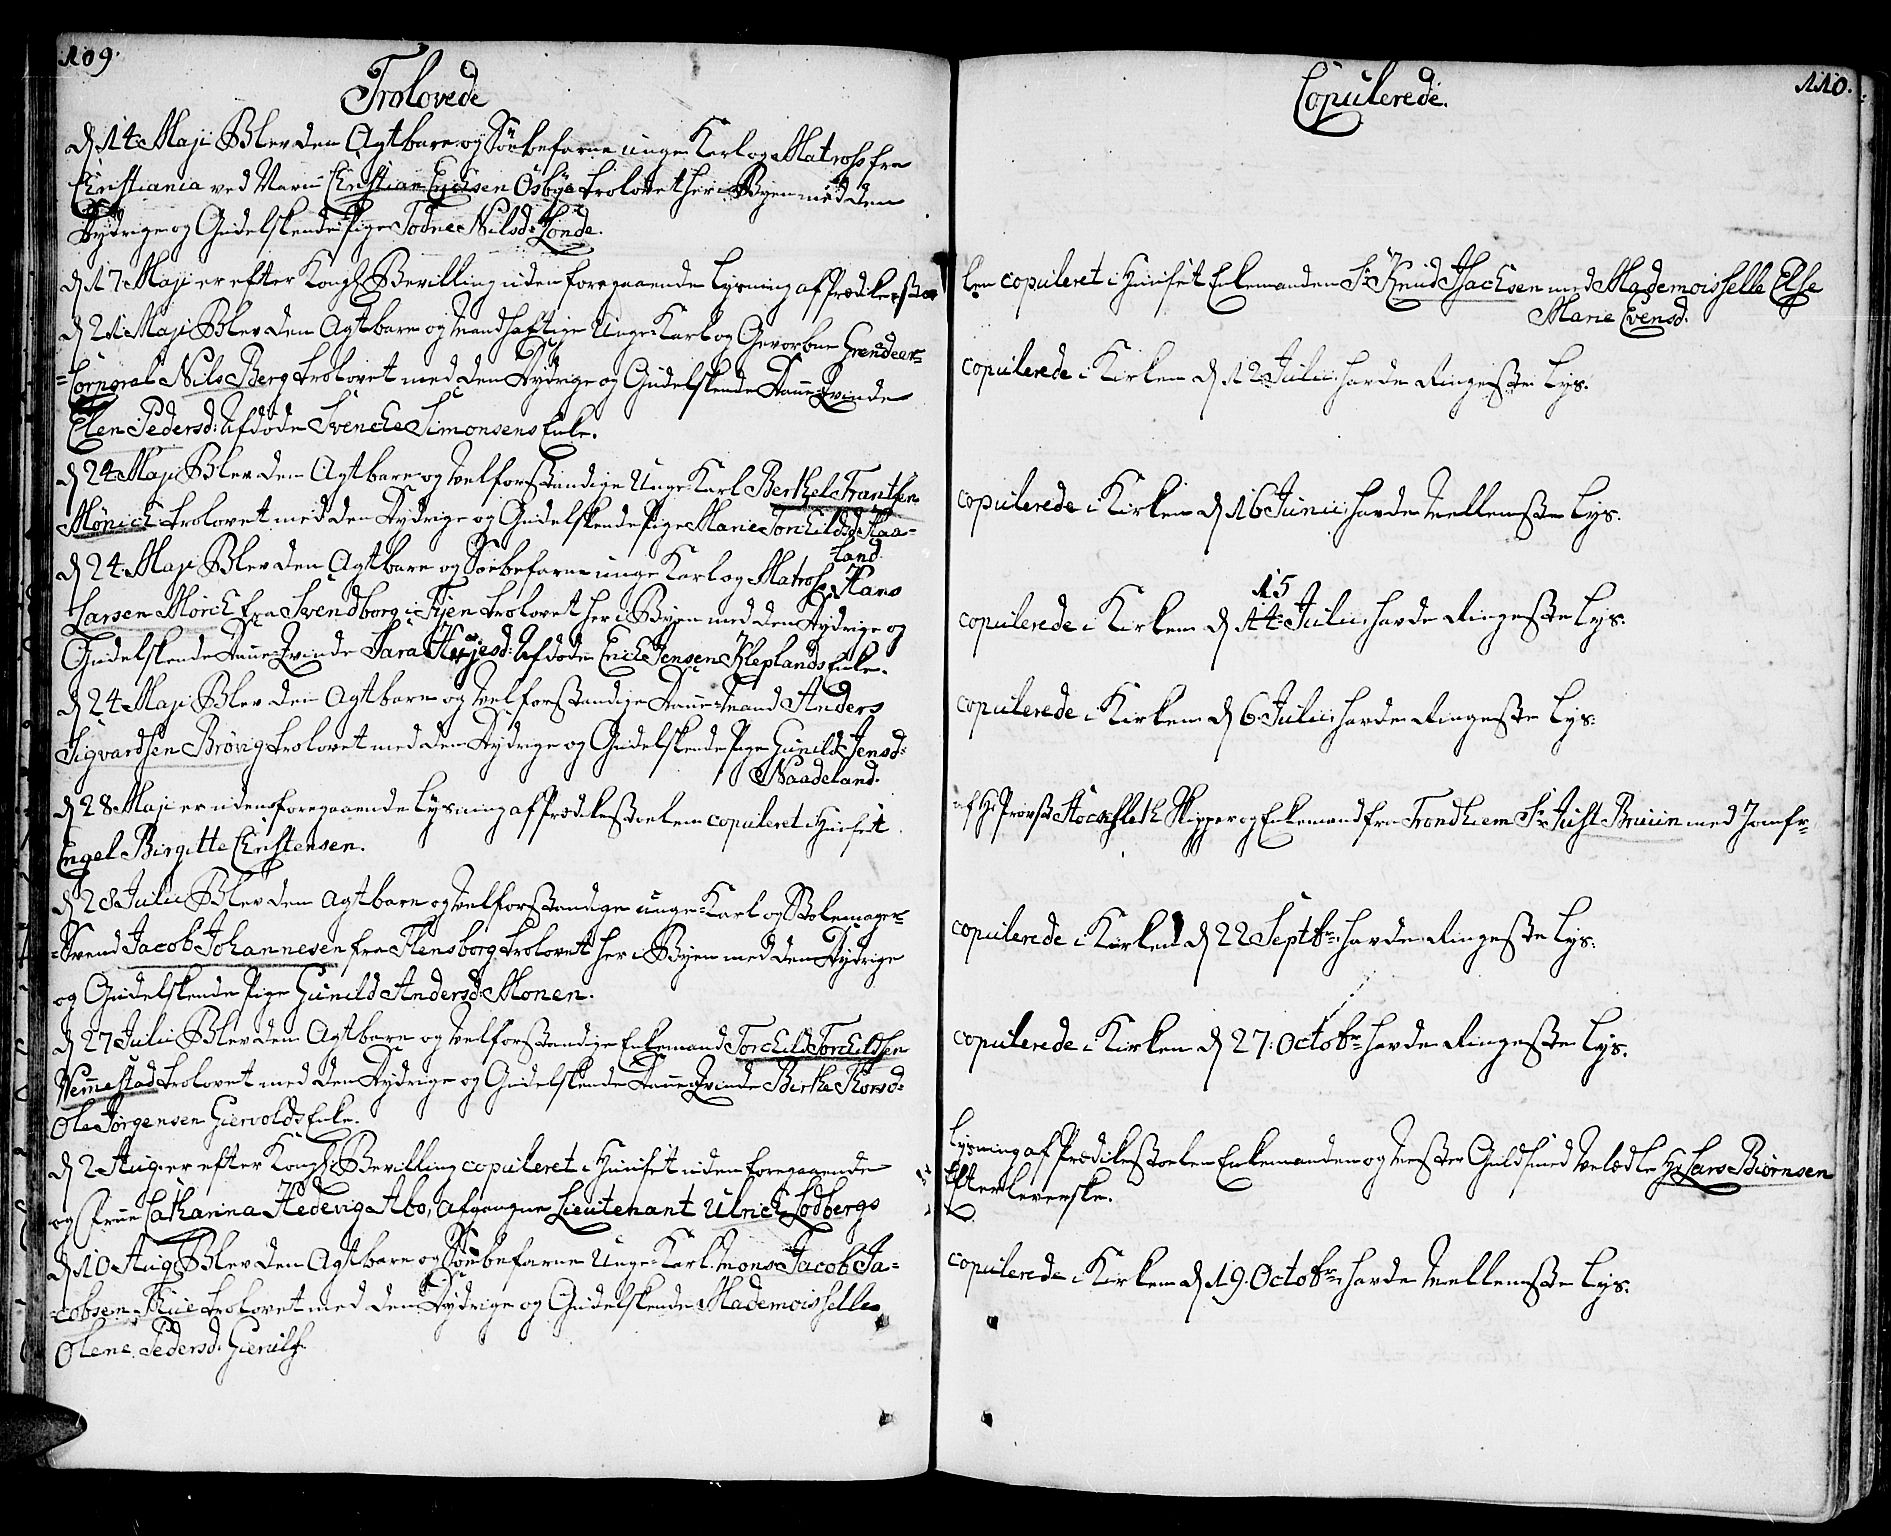 109.
Trolovede
d 14 Maji Blev den Agtbare og Söebefarne unge Karl og Matross fra
Christiania ved Navn Christian Erichsen Osbye trolovet her i Byen med den
Dydrige og Gudelskende Pige Todne Nilsd: Londe.
d 17 Maji er efter Kongl: Bevilling uden foregaaende Lysning af Prædikestoe
d 21 Maji Blev den Agtbare og Mandhaftige Unge Karl og Gevorbne Grendeer-
-Corporal Nils Berg trolovet med den Dydrige og Gudelskende Danneqvinde
Elen Pedersd: Afdøde Svenche Simonsens Enke.
d 24 Maji Blev den Agtbare og Velforstandige Unge Karl Berthel Frantsen
Mönich trolovet med den Dydrige og Gudelskende Pige Marie Torchildsd: Haa-
-land.
d 24 Maji Blev den Agtbare og Söebefarne unge Karl og Matross Hans
Larsen Mörch fra Svendborg i Fyen trolovet her i Byen med den Dydrige og
Gudelskende Danneqvinde Sara Afdøde Erich Jensen Kleplands Enke.
d 24 Maji Blev den Agtbare og Velforstandige Dannemand Anders
Sigvardsen Brövig trolovet med den Dydrige og Gudelskende Pige Gunild Jensd:
Naadeland.
d 28 Maji er uden foregaaende Lysning af Prædikestoelen copuleret i Huuset
Engel Birgitte Christensen.
d 28 Julii Blev den Agtbare og Velforstandige unge Karl og Stolemager-
-Svend Jacob Johannesen fra Flensborg trolovet her i Byen med den Dydrige
og Gudelskende Pige Gunild Andersd: Monen.
d 27 Julii Blev den Agtbare og Velforstandige Enkemand Torchild Torchildsen
Vemestad trolovet med den Dydrige og Gudelskende Danneqvinde Birthe Thorsd:
Ole Jörgensen Giervolds Enke.
d 2 Aug: er efter Kongl: Bevilling copuleret i Huuset uden foregaaende
og Frue Catharina Hedevig Abo, afgangne Lieutenant Ulrich Lodbergs
d 10 Aug: Blev den Agtbare og Söebefarne Unge Karl Mons: Jacob Ja-
-cobsen Riie trolovet med den Dydrige og Gudelskende Mademoisselle
Olene Pedersd: Gierulf.
110.
Copulerede.
len copuleret i Huuset Enkemanden Sr. Knud Isachsen med Mademoisselle Else
Marie Evensd.
copulerede i Kirken d 12 Julii: havde Ringeste Lys.
copulerede i Kirken d 16 Junii: havde Mellemste Lys.
15
copulerede i Kirken d 14 Julii: havde Ringeste Lys.
copulerede i Kirken d 6 Julii: havde Ringeste Lys:
af Hr Provst Stockfleth Skipper og Enkemand fra Trondhiem Sr. Just Bruun med Jomfr-
copulerede i Kirken d 22 Septbr: havde Ringeste Lys.
copulerede i Kirken d 27: Octobr: havde Ringeste Lys.
Lysning af Prædikestoelen Enkemanden og Mester Guldsmed Velædle Hr Lars Biörnsen
Efterleverske.
copulerede i Kirken d 19. Octobr: havde Mellemste Lys.